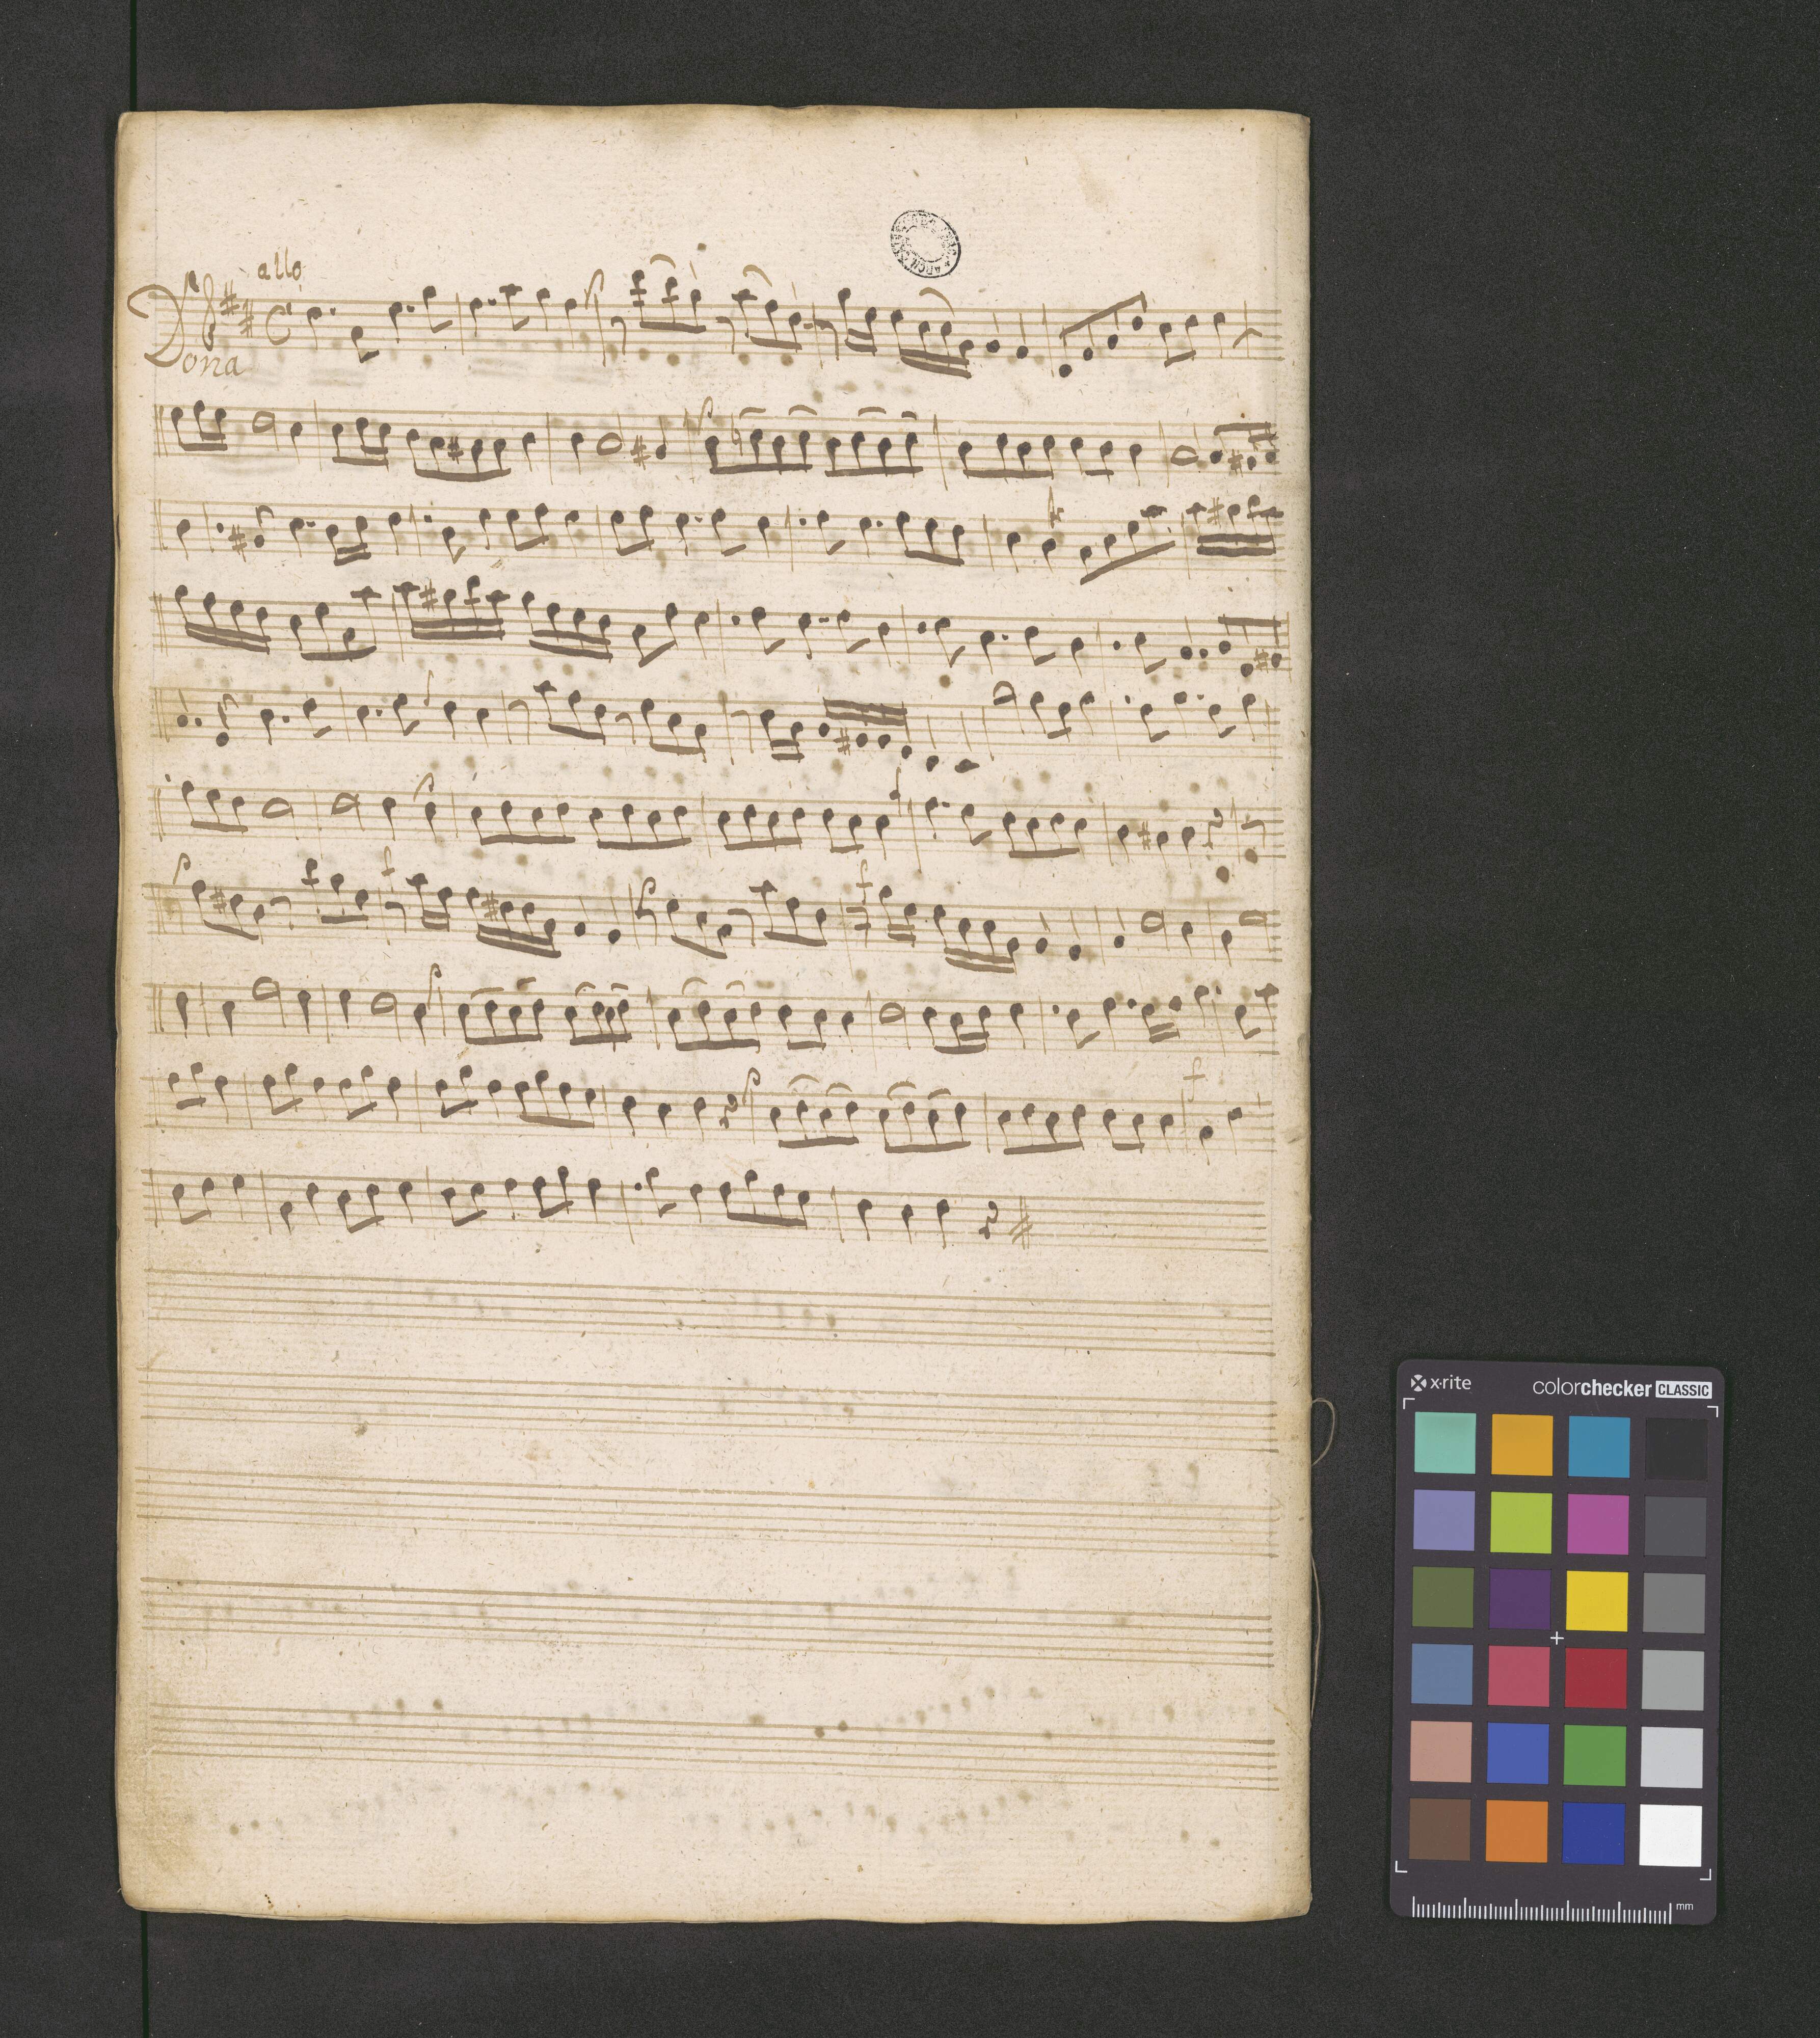 allo
Dona
x-rite
colorchecker CLASSIC
mm